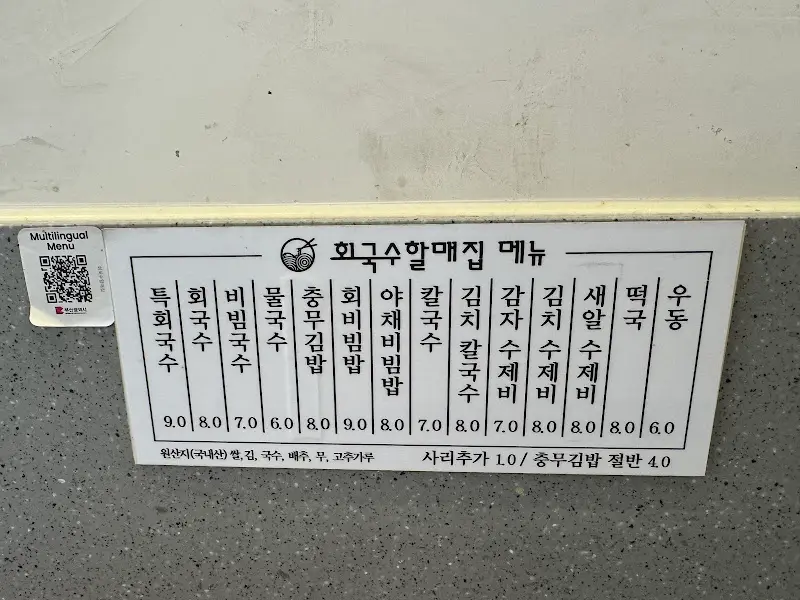 Multilingual
Menu
부산광역시
회국수할매집 메뉴
특회국수 9.0
회국수 8.0
비빔국수 7.0
물국수 6.0
충무김밥 8.0
회비빔밥 9.0
야채비빔밥 8.0
칼국수 7.0
김치 칼국수 8.0
감자 수제비 7.0
김치 수제비 8.0
새알 수제비 8.0
떡국 8.0
우동 6.0
원산지(국내산) 쌀, 김, 국수, 배추, 무, 고추가루
사리추가 1.0 / 충무김밥 절반 4.0